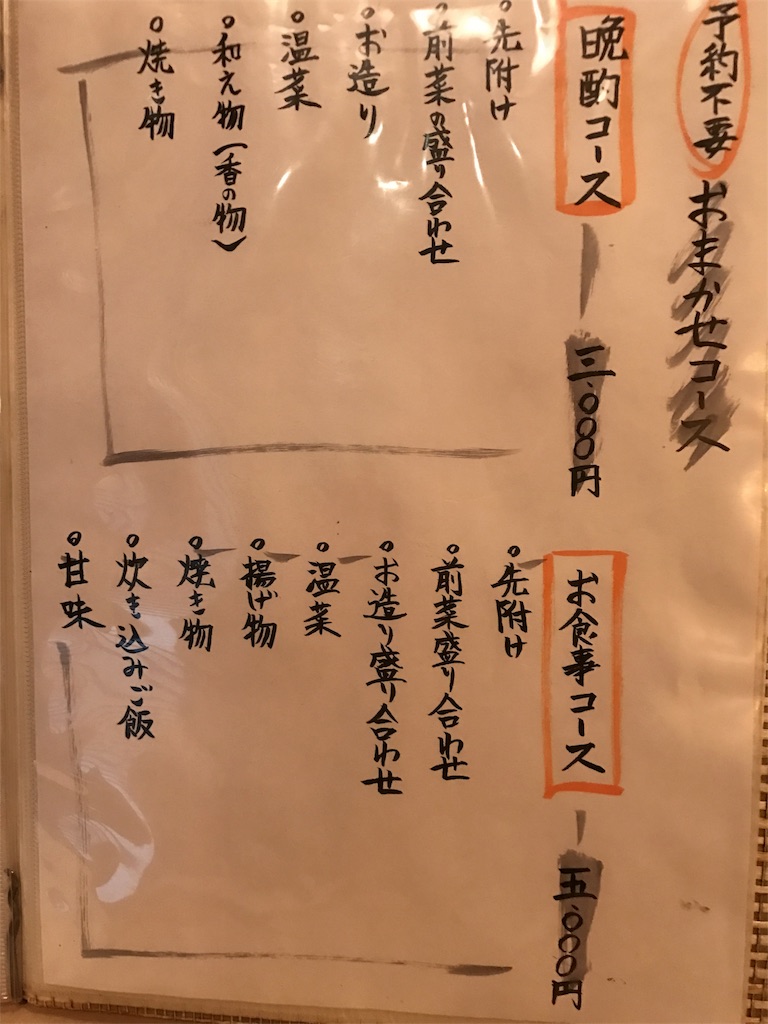 予約不要 おまかせコース
晩酌コース 三.〇〇〇円
先附け
前菜の盛り合わせ
お造り
温菜
和え物(香の物)
焼き物
お食事コース 五.〇〇〇円
先附け
前菜盛り合わせ
お造り盛り合わせ
温菜
揚げ物
焼き物
炊き込みご飯
甘味